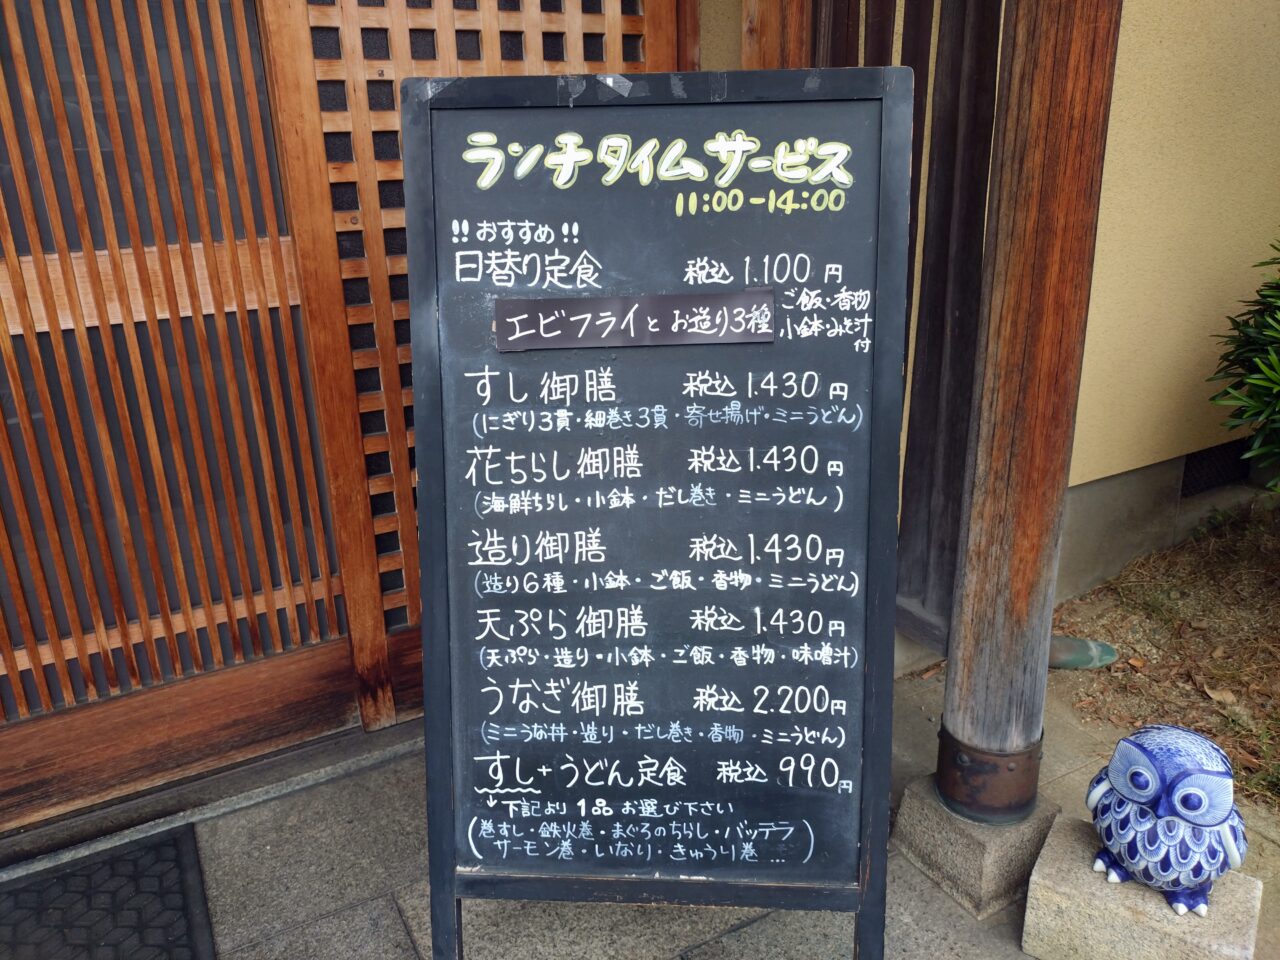 ランチタイムサービス
11:00-14:00
!!おすすめ!!
日替り定食 税込 1.100円
ご飯・香物
エビフライとお造り3種 小鉢・みそ汁
付
すし御膳 税込 1.430円
(にぎり3貫・細巻き3貫・寄せ揚げ・ミニうどん)
花ちらし御膳 税込 1.430円
(海鮮ちらし・小鉢・だし巻き・ミニうどん)
造り御膳 税込 1.430円
(造り6種・小鉢・ご飯・香物・ミニうどん)
天ぷら御膳 税込 1.430円
(天ぷら・造り・小鉢・ご飯・香物・味噌汁)
うなぎ御膳 税込 2.200円
(ミニうな丼・造り・だし巻き・香物・ミニうどん)
すし+うどん定食 税込 990円
↓下記より1品お選び下さい
(巻すし・鉄火巻・まぐろのちらし・バッテラ
サーモン巻・いなり・きゅうり巻…)